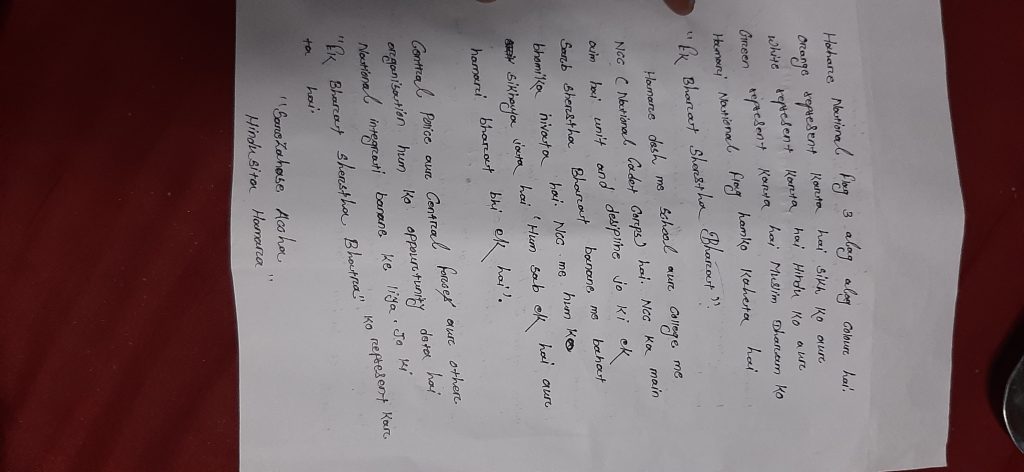 Hahare National flag 3 alag alag colour hai.
orange represent Karata hai sikh ko aur
white represent Karata hai Hindu ko aur
Green represent Karata hai Muslim Dharam ko
Hamari National flag hamko Kaheta hai
"Ek Bharat Shersthe Bharat".
Hamare desh me school aur college me
Ncc (National Cadet Corps) hai. Ncc ka main
aim hai unit and desipline jo ki ek
Sarb shersths Bharat banane me bahat
bhomika nivata hai Ncc me hum ko
sikhayia jata hai 'Hum sab ek hai aur
hamari bharat bhi ek hai'.
Central Police aur Central forses aur others
organisation hum ko oppourtunity data hai
National integrati banane ke liya. Jo ki
"Ek Bharat shersths Bhartra" ko represent kar
ta hai.
"Sarezahase Accha
Hindusita Hamara"